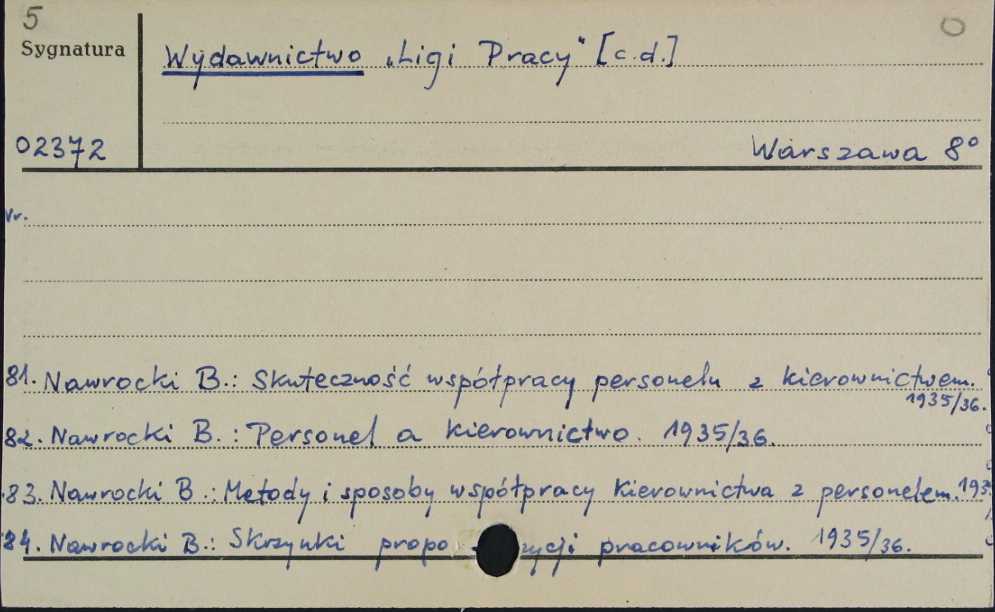 5
Sygnatura
Wydawnictwo „Ligi Pracy" [c.d.]
02372
Warszawa 8°
Vr.
81. Nawrocki B.: Skuteczność współpracy personelu z kierownictwem.
1935/36.
82. Nawrocki B.: Personel a kierownictwo. 1935/36.
83. Nawrocki B.: Metody i sposoby współpracy kierownictwa z personelem. 193
84. Nawrocki B.: Skrzynki propo zycji pracowników. 1935/36.